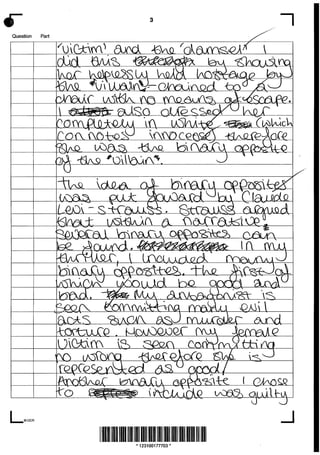 3
Question Part
'victim' and the 'damsel'. I
did this by showing
her helplessly held hostage by
the "villain" - chained to a
chair with no means of escape.
I also dressed her
completely in white (which
connotes innocence) therefore
she was the binary opposite
of the "villain".
The idea of binary opposites
was put foward by Claude
Levi-Strauss. Strauss argued
that within a narrative
several binary opposites can
be found. In my
thriller, I included many
binary opposites. The first of
which would be good and
bad. My antagonist is
seen committing many evil
acts such as murder and
torture. However my female
victim is seen committing
no wrong therefore she is
represented as good.
Another binary opposite I chose
to include was guilty